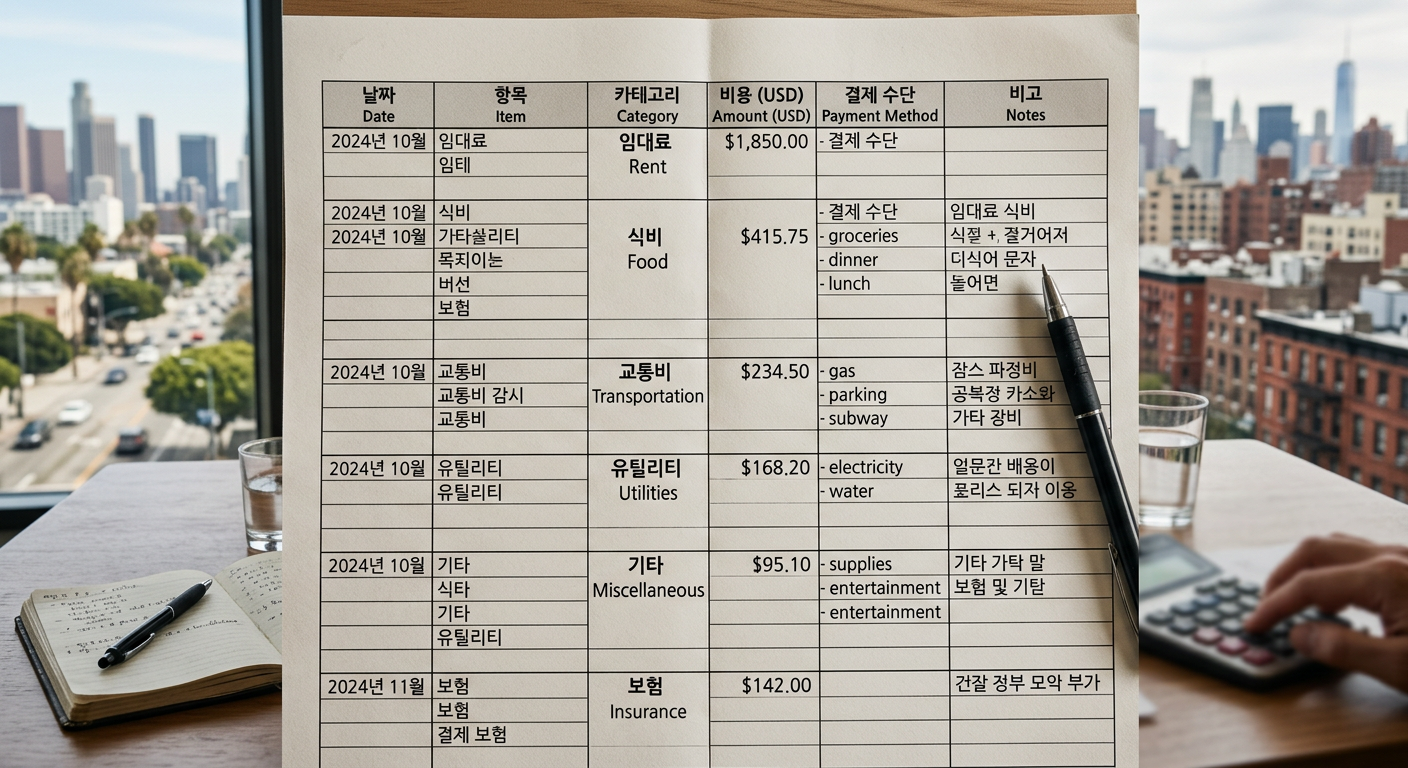 날짜 항목 카테고리 비용 (USD) 결제 수단 비고
Date Item Category Amount (USD) Payment Method Notes
2024년 10월 임대료 임대료 $1,850.00 - 결제 수단
임테 Rent
2024년 10월 식비 - 결제 수단 임대료 식비
2024년 10월 식비 $415.75 - groceries
Food - dinner 디식어 문자
버선 - lunch 돌어면
보험
2024년 10월 교통비 교통비 $234.50 - gas 잠스 파정비
교통비 감시 Transportation - parking 공복정 카소와
교통비 - subway 가타 장비
2024년 10월 유틸리티 유틸리티 $168.20 - electricity 얼문칸 배용이
유틸리티 Utilities - water 되자 이옹
2024년 10월 기타 기타 $95.10 - supplies 기타 가탁 말
식타 Miscellaneous - entertainment 보험 및 기탄
기타 - entertainment
유틸리티
2024년 11월 보험 보험 $142.00 건잘 정부 모악 부가
보험 Insurance
결제 보험